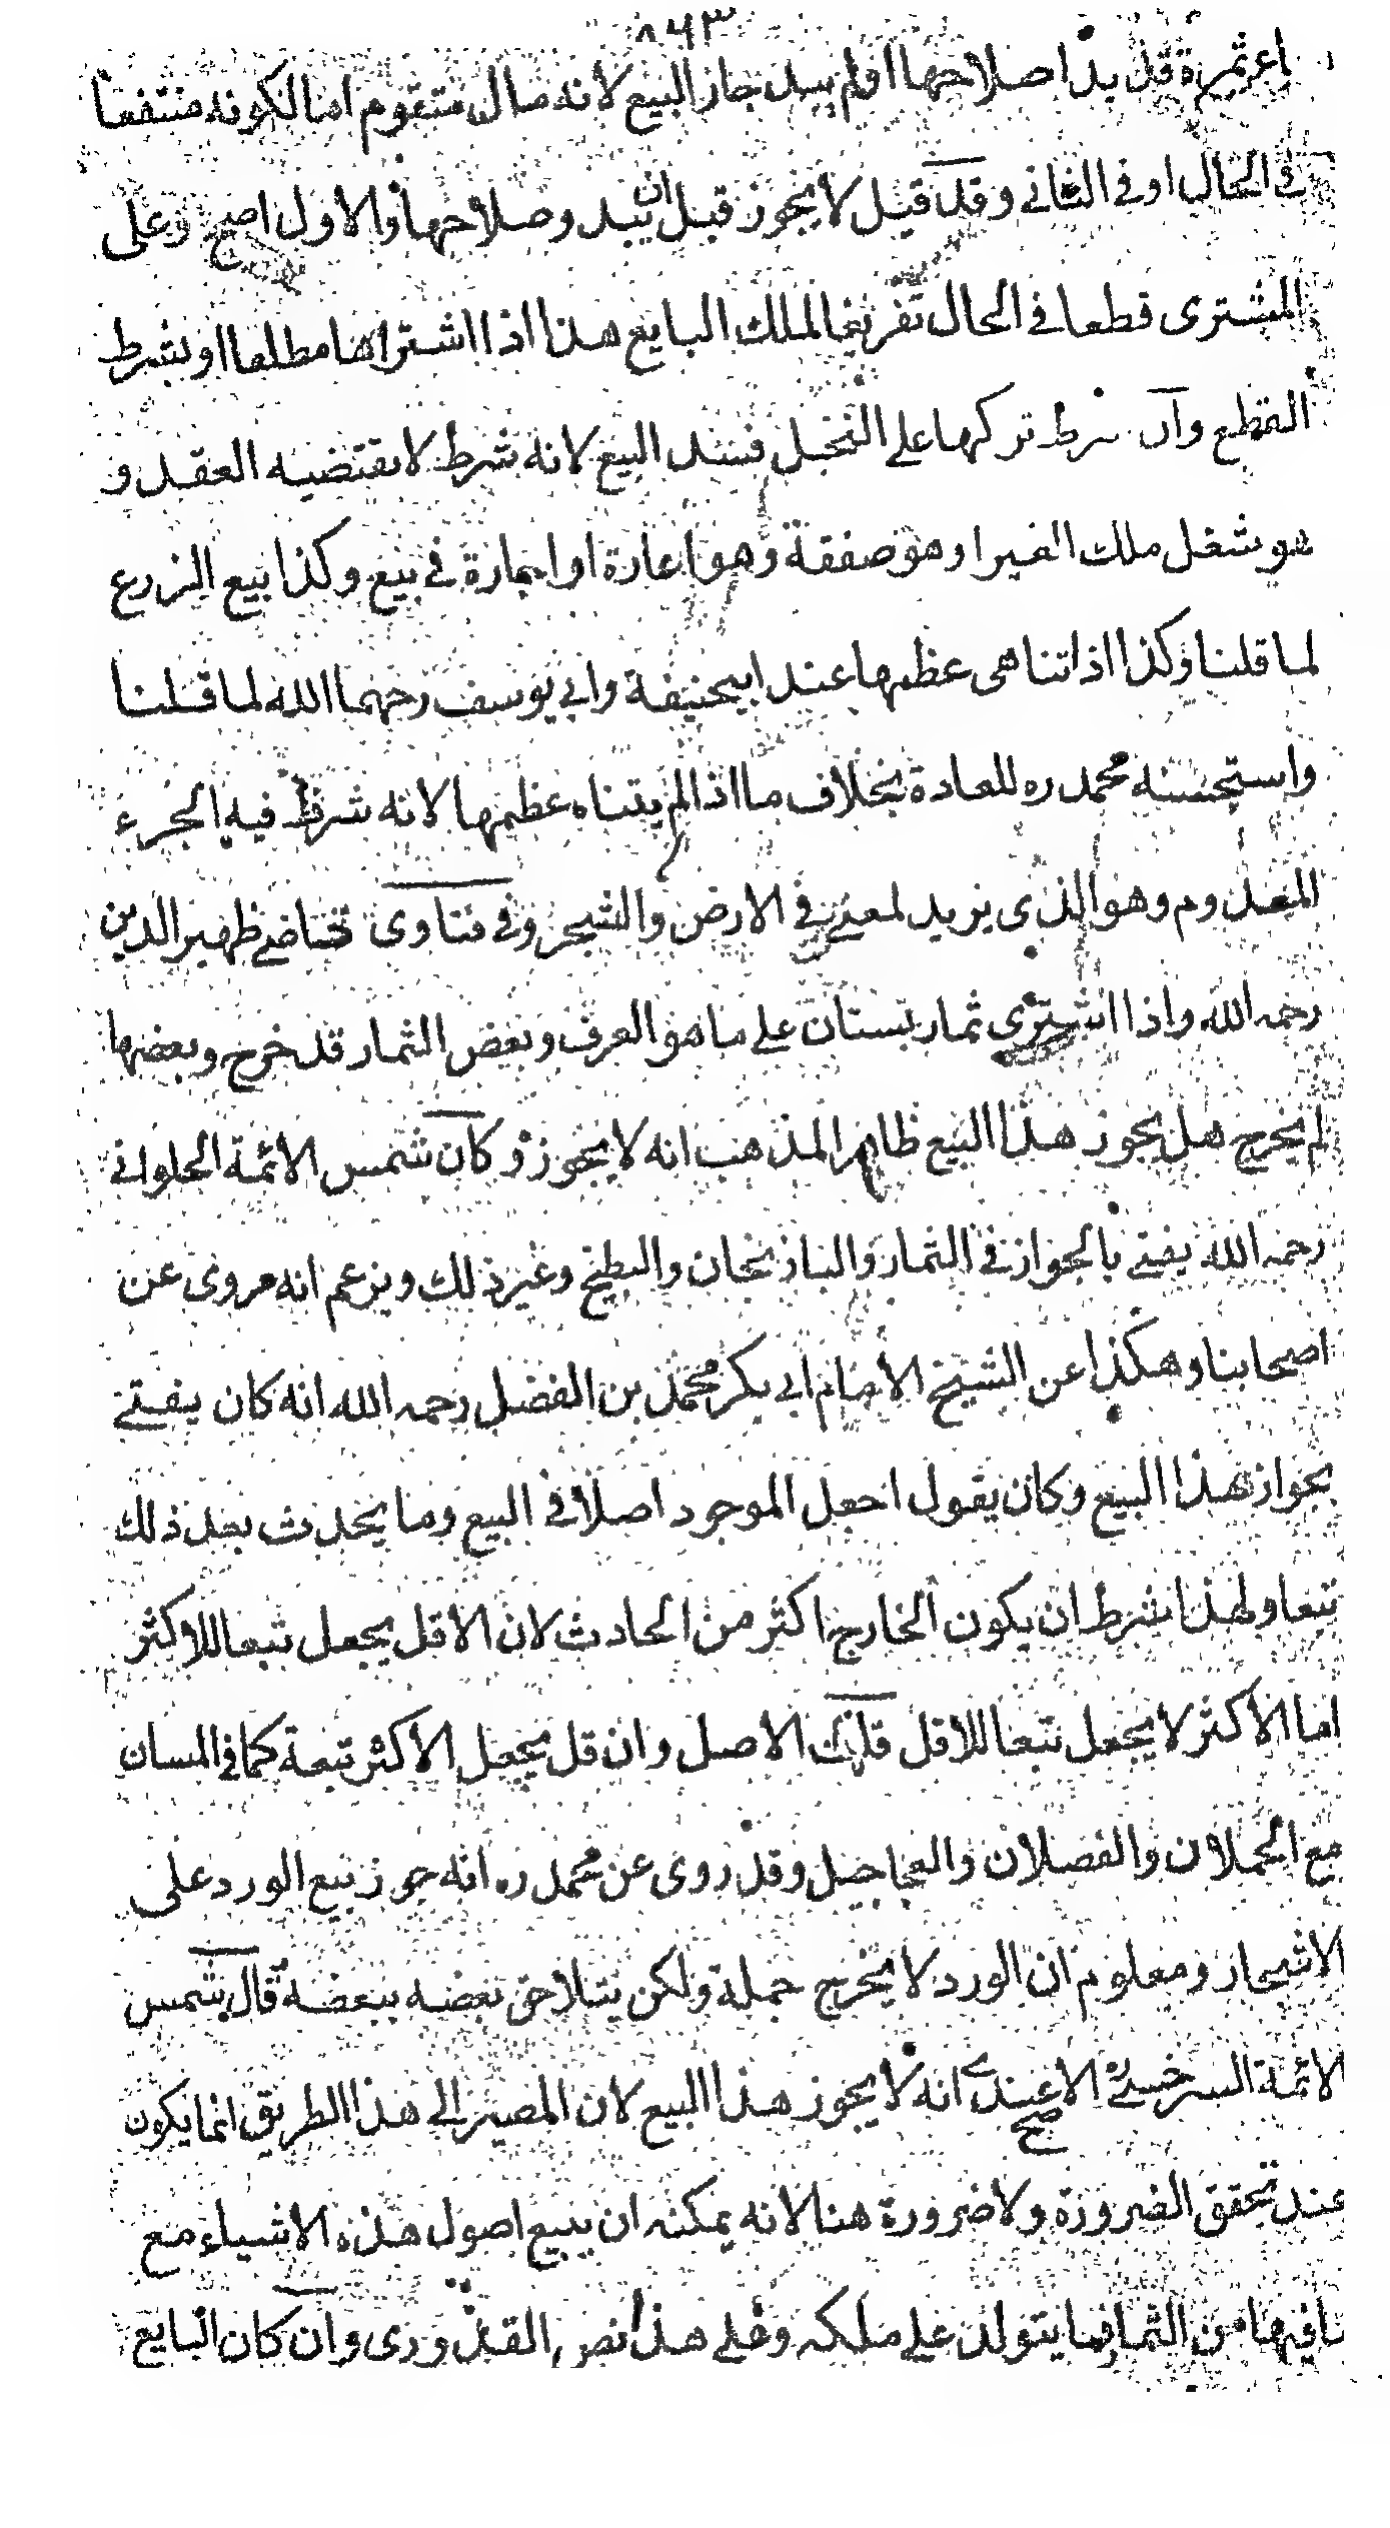 ٨٤٣
باع ثمرة قد بدا صلاحها او لم يبد جاز البيع لانه مال متقوم اما لكونه منتفعا
في الحال او في الثاني وقد قيل لا يجوز قبل ان يبدو صلاحها والاول اصح وعلى
المشتري قطعها في الحال تفريغا لملك البايع هذا اذا اشتراها مطلقا او بشرط
القطع وان شرط تركها على النخيل فسد البيع لانه شرط لا يقتضيه العقد و
هو شغل ملك الغير او هو صفقة وهو اعارة او اجارة في بيع وكذا بيع الزرع
لما قلنا وكذا اذا تناهى عظمها عند ابيحنيفة وابي يوسف رحهما الله لما قلنا
واستحسنه محمد ره للعادة بخلاف ما اذا لم يتناه عظمها لانه شرط فيه الجزء
المعدوم وهو الذي يزيد لمعنى في الارض والشجر وفي فتاوى قاضي ظهير الدين
رحمه الله واذا اشترى ثمار بستان على ما هو العرف وبعض الثمار قد خرج وبعضها
لم يخرج هل يجوز هذا البيع ظاهر المذهب انه لا يجوز وكان شمس الائمة الحلواني
رحمه الله يفتي بالجواز في الثمار والباذنجان والبطيخ وغير ذلك ويزعم انه مروى عن
اصحابنا وهكذا عن الشيخ الامام ابي بكر محمد بن الفضل رحمه الله انه كان يفتي
بجواز هذا البيع وكان يقول اجعل الموجود اصلا في البيع وما يحدث بعد ذلك
تبعا ولهذا شرط ان يكون الخارج اكثر من الحادث لان الاقل يجعل تبعا للاكثر
اما الاكثر لا يجعل تبعا للاقل قلت الاصل وان قل يجعل الاكثر تبعة كما في المسان
مع الحملان والفصلان والعجاجيل وقد روى عن محمد ره انه جوز بيع الورد على
الاشجار ومعلوم ان الورد لا يخرج جملة ولكن يتلاحق بعضه ببعضه قال شمس
الائمة السرخسي الاصح عندي انه لا يجوز هذا البيع لان المصير الى هذا الطريق انما يكون
عند تحقق الضرورة ولا ضرورة هنا لانه يمكنه ان يبيع اصول هذه الاشياء مع
ما فيها من الثمار فما يتولد على ملكه وعلى هذا نص القدوري وان كان البايع